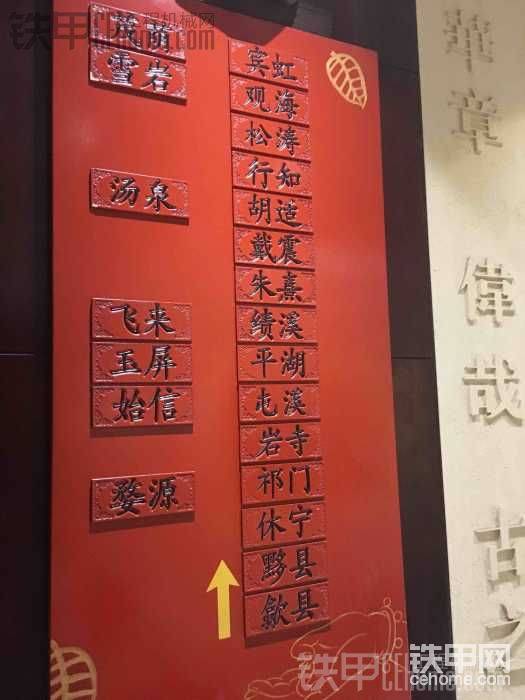 雪岩
汤泉
飞来
玉屏
始信
婺源
宾虹
观海
松涛
行知
胡适
戴震
朱熹
绩溪
平湖
屯溪
岩寺
祁门
休宁
黟县
歙县
華章
偉哉
古之
铁甲
工程机械网
铁甲网
cehome.com